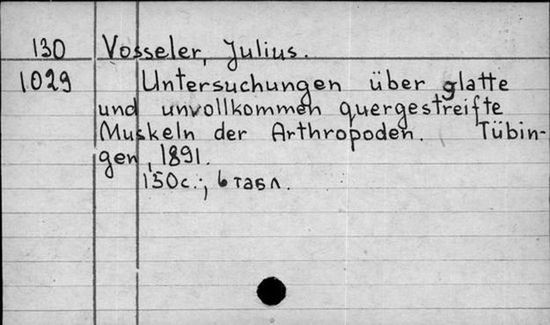 130 Vosseler, Julius.
1029 Untersuchungen über glatte
und unvollkommen quergestreifte
Muskeln der Arthropoden. Tübin-
gen, 1891.
150с.; 6 табл.